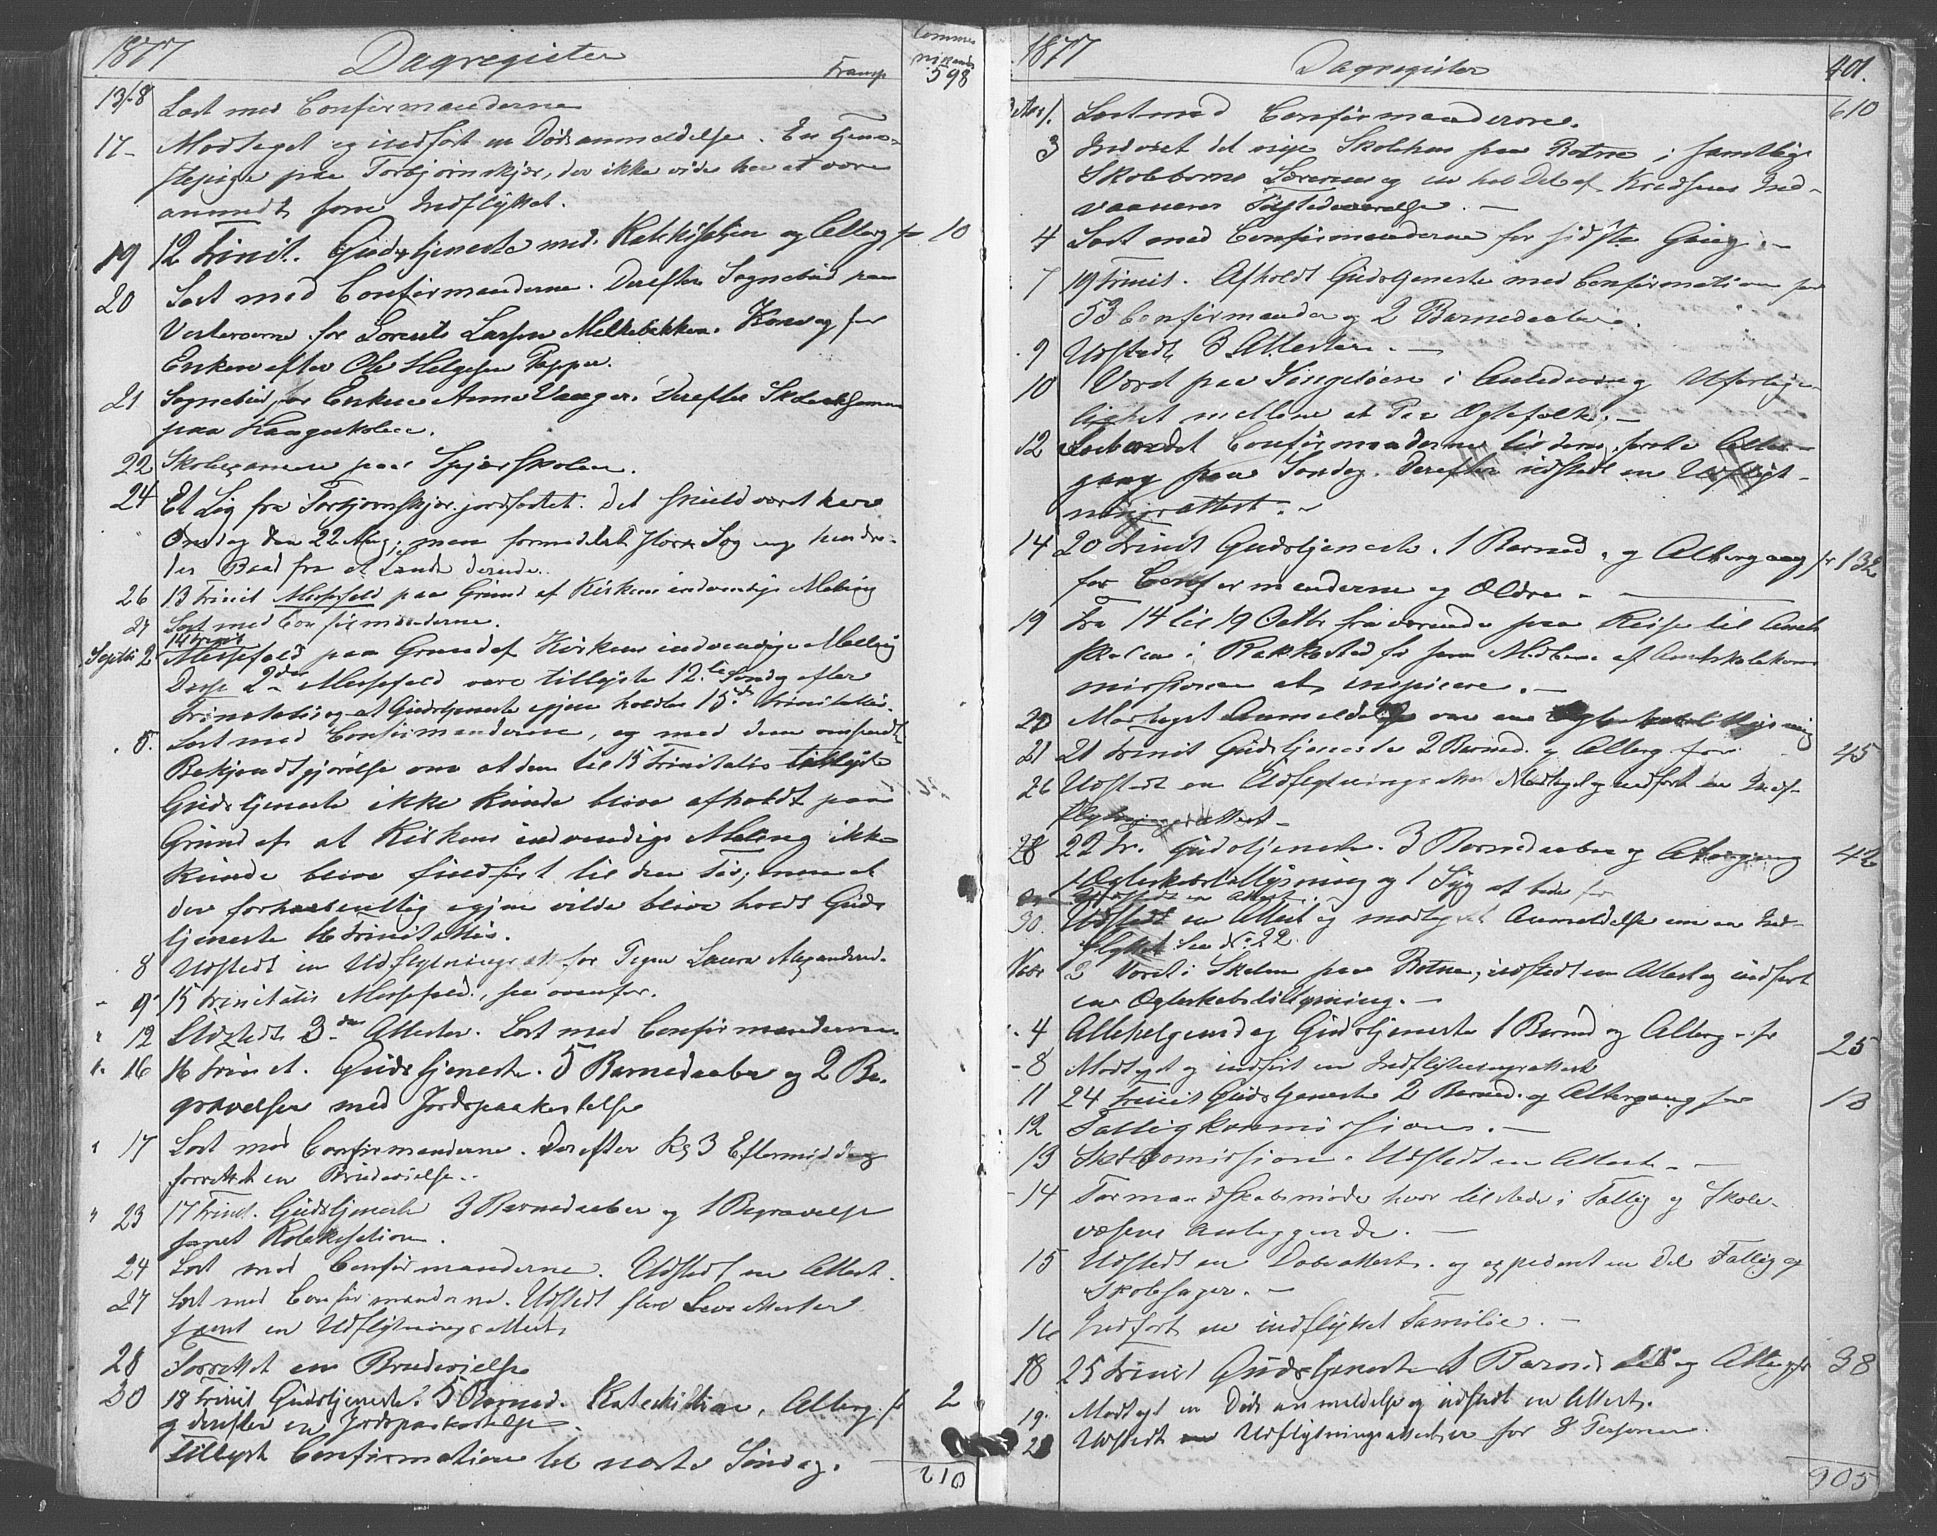 1877 Dagregister Communikanter
Transp 598
13/8 Læst med Confirmanderne
17- Modtaget og indført en Dødsanmeldelse. En Tjene-
stepige paa Torbjørnskjær, der ikke vides her at være
anmeldt som Indflyttet.
19 12 Trinit. Gudstjeneste med Katekisation og Alterg. for 10
20 Læst med Confirmanderne. Derefter Sognebud paa
Vesterøerne for Lorents Larsen Melkebakken. Kone og for
Enken efter Ole Helgesen Papper.
21 Sognebud for Enken Anne Vauger. Derefter Skoleexamen
paa Haugeskolen.
22 Skoleexamen paa Spjær Skolen.
24 Et Lig fra Torbjørnskjær jordfæstet. Det skulde været her
Onsdag den 22 Aug; men formedelst stærk Sø og hindre-
des Baad fra at lande derude.
26 13 Trinit Messefald paa Grund af Kirkens indvendige Maling
27 Læst med Confirmanderne.
Septbr 2 14 Trinit Messefald paa Grund af Kirkens indvendige Maling
Disse 2de Messefald vare tillyste 12te Søndag efter
Trinitatis og at Gudstjeneste igjen holdtes 15de Trinitatis.
5. Læst med Confirmanderne, og med dem omsendt
Bekjendtgjørelse om at den til 15 Trinitatis tillyste
Gudstjeneste ikke kunde blive afholdt paa
Grund af at Kirkens indvendige Maling ikke
kunde blive fuldført til den Tid; men at
der forhaabentlig igjen vilde blive holdt Guds
tjeneste 16 Trinitatis.
8 Udstedt en Udflytningsatt for Pigen Laura Alexandersd.
9 15 Trinitatis Messefald, se ovenfor.
12 Udstedt 3de Attester. Læst med Confirmanderne
16 16 Trinit. Gudstjeneste. 5 Barnedaaber og 2 Be-
gravelser med Jordspaakastelse
17 Læst med Confirmanderne. Derefter Kl 3 Eftermiddag
forrettet en Brudevielse.
23 17 Trinit. Gudstjeneste 3 Barnedaaber og 1 Begravelse
samt Katekisation.
24 Læst med Confirmanderne. Udstedt en Attest.
27 Læst med Confirmanderne. Udstedt flere Attester
samt en Udflytningsattest.
28 Forrettet en Brudevielse
30 18 Trinit Gudstjeneste. 5 Barned. Katekisation, Alterg. for 2
og derefter en Jordspaakastelse
tillyst Confirmation til næste Søndag.
610
1877 Dagregister 401.
Octbr 1. Læst med Confirmanderne. 610
3 Indviet det nye Skolehus paa Botne i samtlige
Skolebørns Lærernes og en hel Del af Kredsens Ind-
vaaneres Tilstedeværelse.
4 Læst med Confirmanderne for sidste Gang.
7 19 Trinit. Afholdt Gudstjeneste med Confirmation for
53 Confirmander og 2 Barnedaaber.
9 Udstedt 3 Attester.
10 Været paa Singeløen i Anledning Uforlige-
lighet mellem et Par Ægtefolk.
12 Forberedt Confirmanderne til deres første Alter-
gang paa Søndag. Derefter udstedt en Udflyt-
ningsattest.
14 20 Trinit Gudstjeneste. 1 Barned. og Altergang for 132
for Confirmanderne og Ældre.
19 Fra 14 til 19 Octbr fraværende paa Reise til Amt
skolen i Rakkestad for som Medlem af Amtskolekom
missionen at inspicere.
20 Modtaget Anmeldelse om en Ægteskabstillysning
21 21 Trinit Gudstjeneste 2 Barned. og Alterg for 45
26 Udstedt en Udflytningsattest Modtaget og indført en Ind-
flytningsattest
28 22 Tr. Gudstjeneste. 3 Barnedaaber og Altergang 42
1 Ægteskabstillysning og 1 Syg at bede for
30. Udstedt en Attest og modtaget Anmeldelse om en Ind-
flyttet See No 22
Novbr 3 Været i Skolen paa Botne, udstedt en Attest og indført
en Ægteskabstillysning.
4 Allehelgensdag Gudstjeneste 1 Barned og Alterg. for 25
8 Modtaget og indført en Indflytningsattest
11 24 Trinit Gudstjeneste 2 Barned. og Altergang for 13
12 Fattigkommission.
13 Skolecomission. Udstedt en Attest.
14 Formandskabsmøde hvor tilstede i Fattig og Skole-
væsenet anliggende.
15 Udstedt en Daabsattest. og expederet en Del Fattig og
Skolesager.
16 Indført en indflyttet Familie.
18 25 Trinit Gudstjeneste 1 Barned og Alterg for 38
19. Modtaget en Dødsanmeldelse og udstedt en Attest.
20 Udstedt Udflytningsattester for 8 Personer.
905